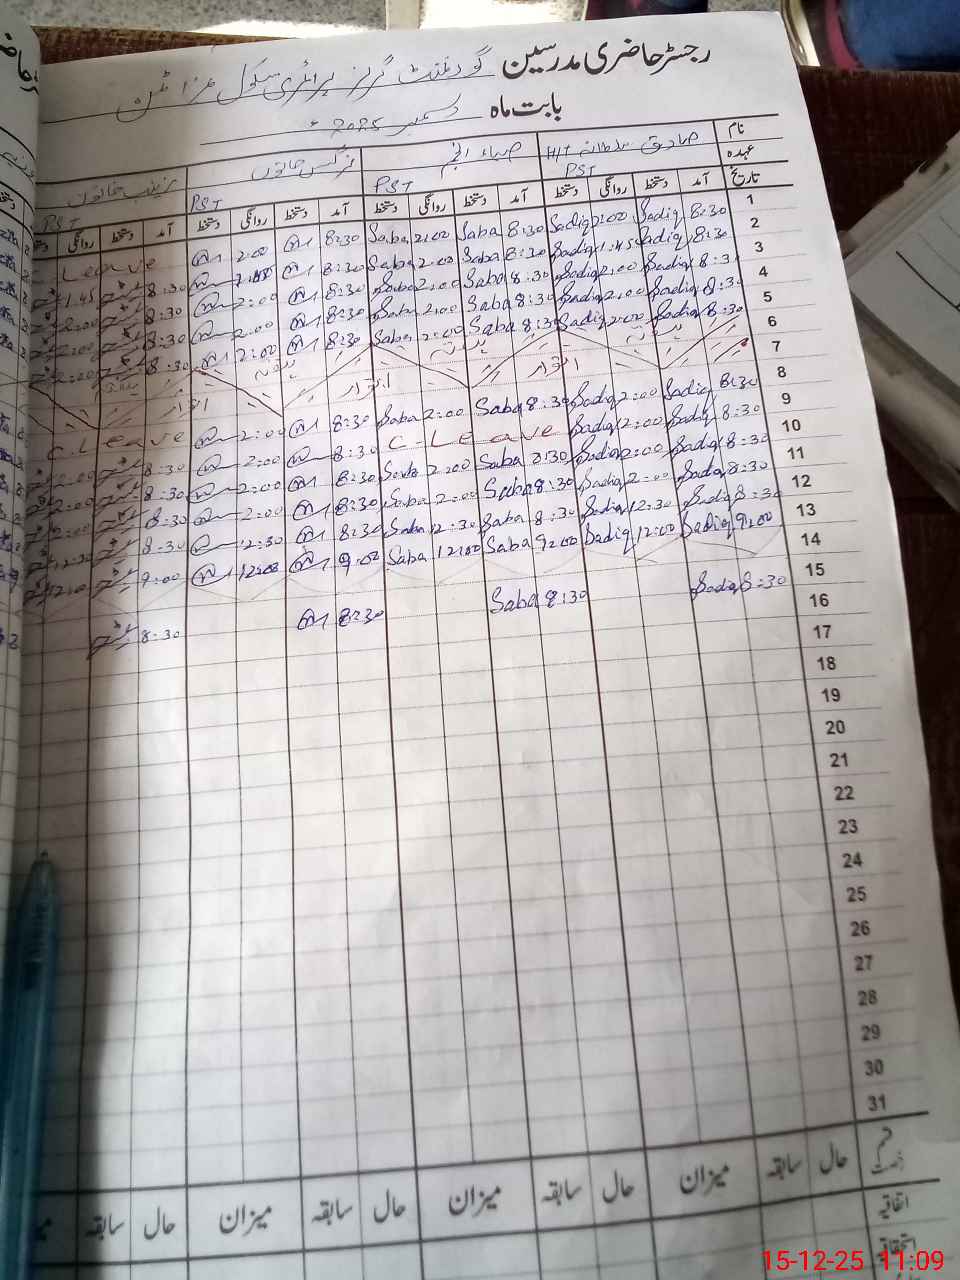 رجسٹر حاضری مدرسین گورنمنٹ گرلز پرائمری سکول
بابت ماہ دسمبر 2025ء
نام صادق سلطانہ H/T صباء انجم نرگس خاتون زینب خاتون
عہدہ PST PST PST PST
تاریخ آمد دستخط روانگی دستخط آمد دستخط روانگی دستخط آمد دستخط روانگی دستخط آمد دستخط روانگی
1 8:30 Sadiq 2:00 Sadiq 8:30 Saba 2:00 Saba 8:30 2:00 Leave
2 8:30 Sadiq 1:45 Sadiq 8:30 Saba 2:00 Saba 8:30 8:30 1:45
3 8:3 Sadiq 2:00 Sadiq 8:30 Saba 2:00 Saba 8:30 2:00 8:30 2:00
4 8:30 Sadiq 2:00 Sadiq 8:30 Saba 2:00 Saba 8:30 2:00 8:30 2:00
5 8:30 Sadiq 2:00 Sadiq 8:30 Saba 2:00 Saba 8:30 2:00 8:30 2:00
6
7 اتوار اتوار اتوار
8 8:30 Sadiq 2:00 Sadiq 8:30 Saba 2:00 Saba 8:30 2:00 C.Leave
9 8:30 Sadiq 2:00 Sadiq C-Leave 8:30 2:00 8:30 2:00
10 8:30 Sadiq 2:00 Sadiq 8:30 Saba 2:00 Saba 8:30 2:00 8:30 2:00
11 8:30 Sadiq 2:00 Sadiq 8:30 Saba 2:00 Saba 8:30 2:00 8:30 2:00
12 8:30 Sadiq 12:30 Sadiq 8:30 Saba 12:30 Saba 8:30 12:30 8:30 12:30
13 9:00 Sadiq 12:00 Sadiq 9:00 Saba 12:00 Saba 9:00 12:00 9:00 12:00
14
15 8:30 Sadiq 8:30 Saba 8:30 8:30
16
17
18
19
20
21
22
23
24
25
26
27
28
29
30
31
حال سابقہ میزان حال سابقہ میزان حال سابقہ میزان حال سابقہ
اتفاقیہ
استحقاقیہ
15-12-25 11:09